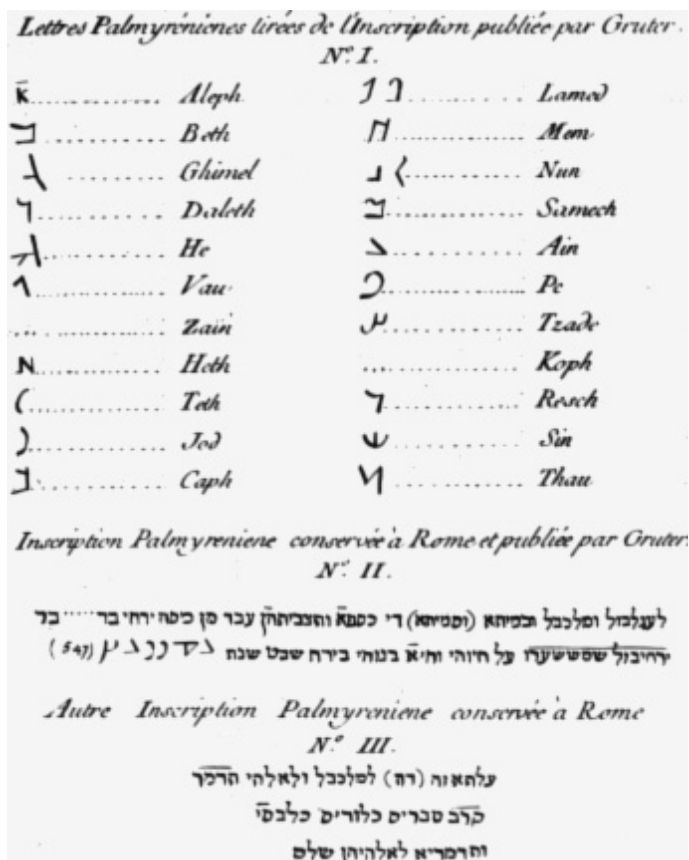 Lettres Palmyréniènes tirées de l'Inscription publiée par Gruter.
N.º I.
Aleph
Beth
Ghimel
Daleth
He
Vau
Zain
Heth
Teth
Jod
Caph
Lamed
Mem
Nun
Samech
Ain
Pe
Tzade
Koph
Resch
Sin
Thau
Inscription Palmyreniene conservée à Rome et publiée par Gruter.
N.º II.
לעגלבול ומלכבל וכמיתא (וסמיתא) די כספא ותצביתה עבד מן כיסה ירחי בר ..... בר
ירחיבול על חיוהי וחיא בנוהי בירח שבט שנת (547)
Autre Inscription Palmyreniene conservée à Rome
N.º III.
עלתא זה (דה) למלכבל ולאלהי תדמר
קרב טבריס כלודיס
ותדמריא לאלהיהן שלם